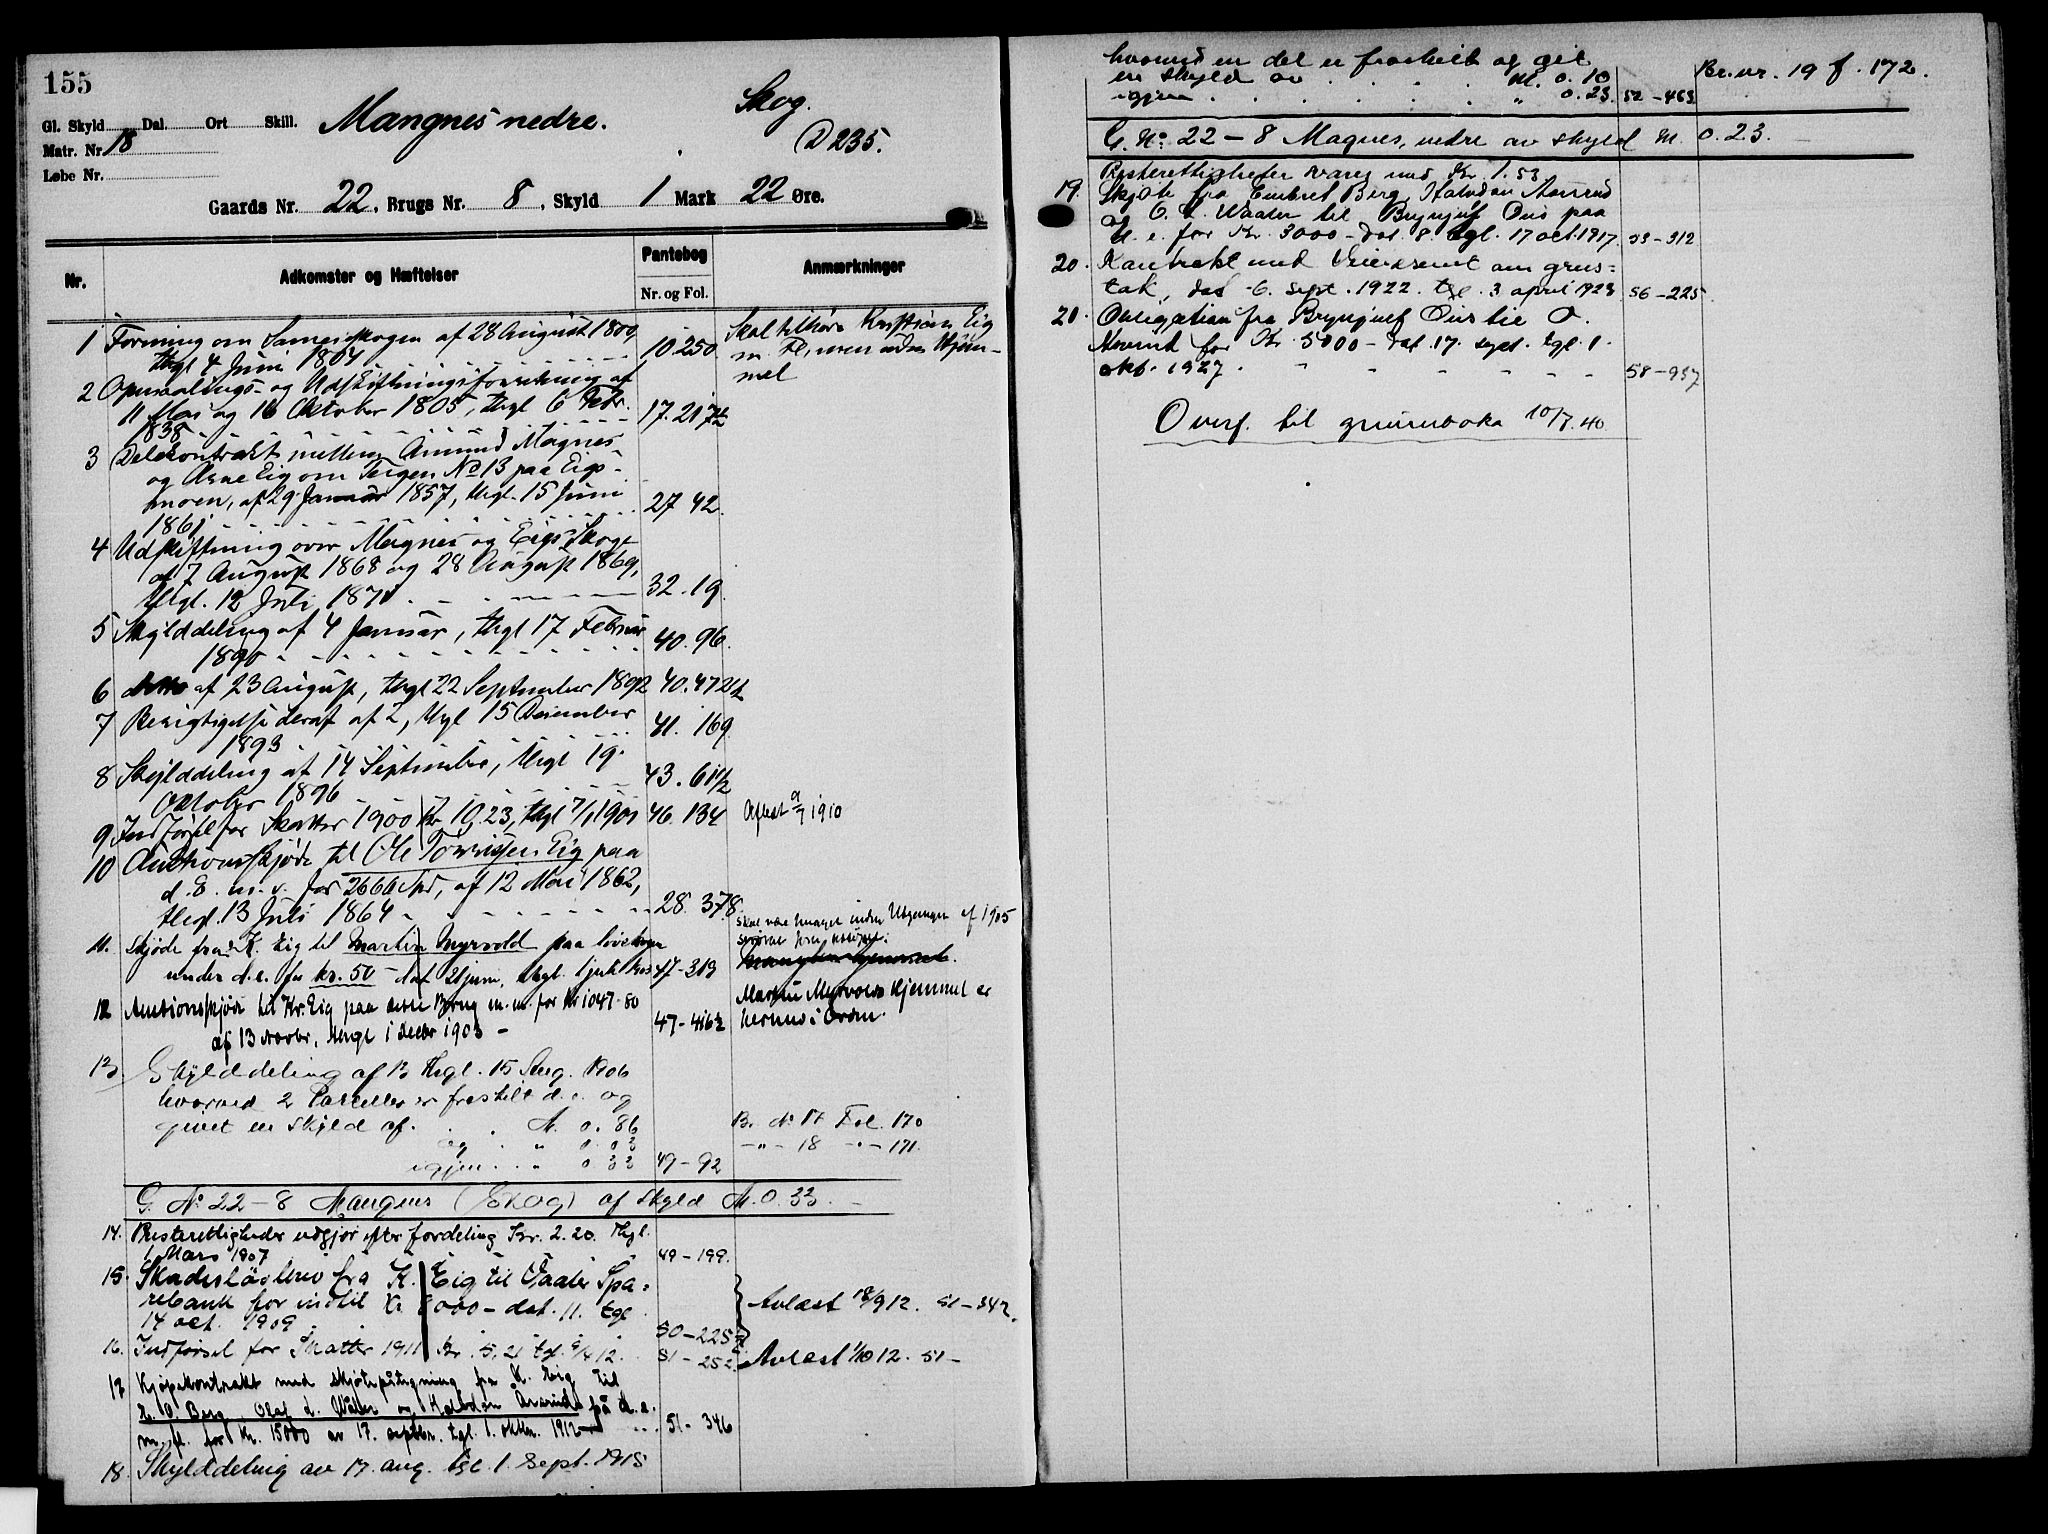 155
Gl. Skyld Dal. Ort Skill. Mangnes nedre. Skog.
Matr. Nr. 18 D 235.
Løbe Nr.
Gaards Nr. 22, Brugs Nr. 8, Skyld 1 Mark 22 Øre.
Nr. Adkomster og Hæftelser Pantebog Anmærkninger
Nr. og Fol.
1 Forening om Sameieskogen af 28 August 1800, Skal tilhøre Kristian Eig
thgl 4 Juni 1804 10.250 m. Fl., men uden Hjem-
mel
2 Opmaalings- og Udskiftningsforretning af
11 Mai og 16 Oktober 1805, thgl 6 Febr. 17.217½
1838
3 Delekontrakt mellem Amund Magnes
og Arne Eig om Teigen No 13 paa Eigs-
moen, af 29 Januar 1857, thgl. 15 Juni 27 42.
1861
4 Udskiftning over Magnes og Eigs Skoge
af 7 August 1868 og 28 August 1869,
thgl. 12 Juli 1871 32.19.
5 Skylddeling af 4 Januar, thgl 17 Februar 40.96.
1890
6 ditto af 23 August, thgl 22 September 1892 40.472½
7 Berigtigelse deraf af 2, thgl 15 December 41. 169
1893
8 Skylddeling af 14 September, thgl 19. 43. 61½
Oktober 1896
9 Indførsel for Skatter 1900 Kr 10,23, thgl 7/1 1901 46. 134 Aflæst 9/7 1910
10 Auktionsskjøde til Ole Torrissen Eig paa
d. E. m. v. for 2666 Spd, af 12 Mai 1862,
thgl. 13 Juli 1864 28. 378.
skal være unøjagt inden Utgangen af 1905
11. Skjøde fra K. Eig til Martin Myrvold paa
under d. e. for kr. 50 – dat 21 juni, thgl. 1 juli 47-319
Martin Myrvolds Hjemmel er
12 Auctionsskjøde til Kr. Eig paa dette Brug m. m. for Kr 1047-80
af 13 Novbr, thgl 1 decbr 1903 – 47-416½ i Orden.
13. Skylddeling af 13 thgl. 15 Aug. 1906
hvorved 2 Parceller er fraskilt d. e. og
givet en skyld af. M. 0.86 Br. No 17 Fol. 170
og " 0.03 -"- 18 -"- 171.
igjen " 0.33 49-92
G. No 22-8 Mangnes (Skog) af Skyld M. 0.33.
14. Presterettigheder udgjør efter fordeling Kr. 2.20. Thgl.
1 Mars 1907 49-199.
15. Skadesløsbrev fra K. Eig til Vaaler Spa-
rebank for indtil Kr 8000 – dat. 11. tgl Avlæst 18/9 12. 51-342.
14 oct. 1909 50-225½
16. Indførsel for Skatter 1911 Kr. 5,21 tgl. 9/4 12. 51-252. Avlæst 1/10 12. 51-
17 Kjøpekontrakt med skjøtepåtegning fra K. Eig til
E. O. Berg, Olaf d. Waler og Halvdan Aarnrud på d. e.
m. fl. for Kr. 15000 av 17. septbr. tgl. 1. oktbr. 1912 51-346
18. Skylddeling av 17. aug. tgl. 1. Sept. 1915
hvorved en del er fraskilt og git
en skyld av M. 0.10 Br. nr. 19 f. 172.
igjen " 0.23 52-463
G. No 22-8 Magnes, nedre av skyld M. 0.23.
Presterettigheter svares med Kr. 1.53
19. Skjøte fra Embret Berg, Halvdan Aarnrud
og O. L. Waaler til Brynjulf Ous paa
d. e. for Kr. 3000 – dat. 8. tgl. 17 oct. 1917 53-312
20. Kontrakt med Veivæsenet om grus-
tak, dat 6. sept. 1922. tgl. 3 april 1923 56-225
21. Obligation fra Brynjulf Ous til O.
for Kr. 5000 – dat. 17. sept. tgl. 1.
okt. 1927. 58-937
Overf. til grunnboka 10/7.40